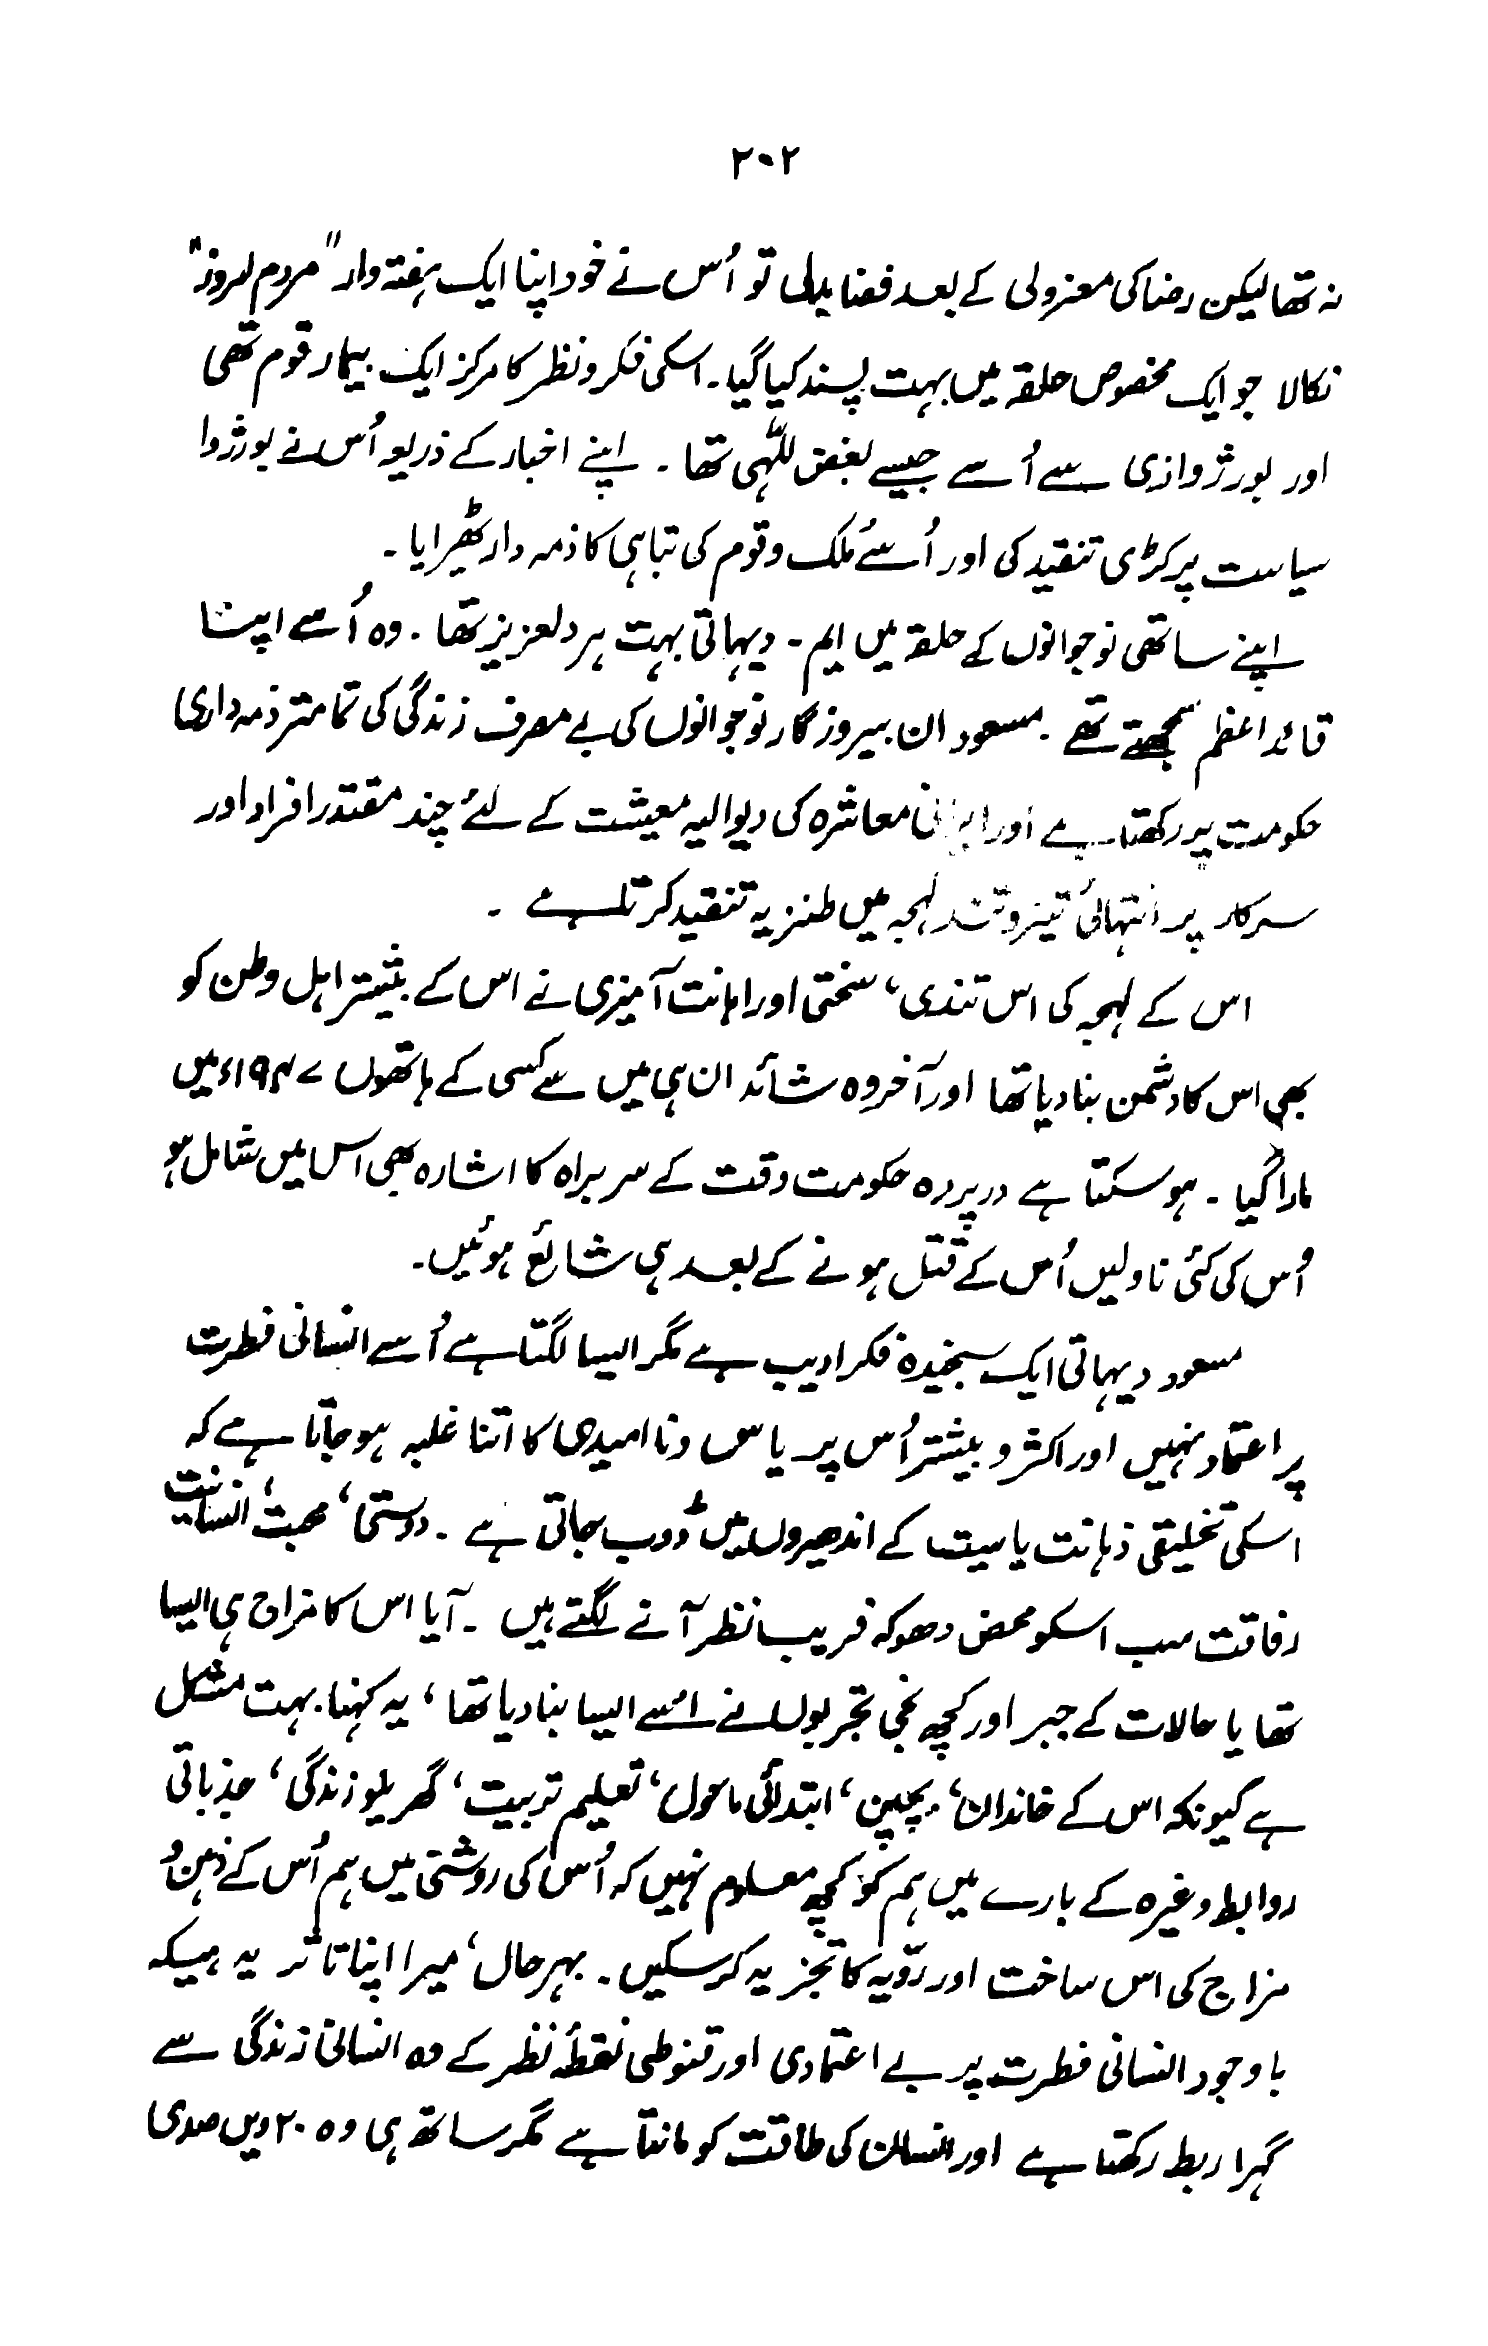 ۲۰۲
نہ تھا لیکن رضا کی معزولی کے بعد فضا بدلی تو اُس نے خود اپنا ایک ہفتہ وار "مردم امروز"
نکالا جو ایک مخصوص حلقہ میں بہت پسند کیا گیا۔ اسکی فکر و نظر کا مرکز ایک بیمار قوم تھی
اور بورژوازی سے اُسے جیسے بغض للّٰہی تھا۔ اپنے اخبار کے ذریعہ اُس نے بورژوا
سیاست پر کڑی تنقید کی اور اُسے ملک و قوم کی تباہی کا ذمہ دار ٹھیرایا۔
اپنے ساتھی نوجوانوں کے حلقہ میں ایم۔ دیہاتی بہت ہر دلعزیز تھا۔ وہ اُسے اپنا
قائد اعظم سمجھتے تھے۔ مسعود ان بیروزگار نوجوانوں کی بے مصرف زندگی کی تمامتر ذمہ داری
حکومت پر رکھتا ہے اور ایرانی معاشرہ کی دیوالیہ معیشت کے لئے چند مقتدر افراد اور
سرکار پر انتہائی تیز و تند لہجہ میں طنزیہ تنقید کرتا ہے۔
اس کے لہجہ کی اس تندی، سختی اور اہانت آمیزی نے اس کے بیشتر اہل وطن کو
بھی اس کا دشمن بنا دیا تھا اور آخر وہ شائد ان ہی میں سے کسی کے ہاتھوں ۱۹۴۷ء میں
مارا گیا۔ ہو سکتا ہے در پردہ حکومت وقت کے سربراہ کا اشارہ بھی اس میں شامل ہو
اُس کی کئی ناولیں اُس کے قتل ہونے کے بعد ہی شائع ہوئیں۔
مسعود دیہاتی ایک سنجیدہ فکر ادیب ہے مگر ایسا لگتا ہے اُسے انسانی فطرت
پر اعتماد نہیں اور اکثر و بیشتر اُس پر یاس و نا امیدی کا اتنا غلبہ ہو جاتا ہے کہ
اسکی تخلیقی ذہانت یاسیت کے اندھیروں میں ڈوب جاتی ہے۔ دوستی، محبت، انسانیت
رفاقت سب اسکو محض دھوکہ فریب نظر آنے لگتے ہیں۔ آیا اس کا مزاج ہی ایسا
تھا یا حالات کے جبر اور کچھ نجی تجربوں نے اسے ایسا بنا دیا تھا، یہ کہنا بہت مشکل
ہے کیونکہ اس کے خاندان، بچپن، ابتدائی ماحول، تعلیم تربیت، گھریلو زندگی، جذباتی
روابط وغیرہ کے بارے میں ہم کو کچھ معلوم نہیں کہ اُس کی روشنی میں ہم اُس کے ذہن و
مزاج کی اس ساخت اور رویّہ کا تجزیہ کر سکیں۔ بہرحال، میرا اپنا تاثر یہ ہیکہ
باوجود انسانی فطرت پر بے اعتمادی اور قنوطی نقطۂ نظر کے وہ انسانی زندگی سے
گہرا ربط رکھتا ہے اور انسان کی طاقت کو مانتا ہے مگر ساتھ ہی وہ ۲۰ ویں صدی